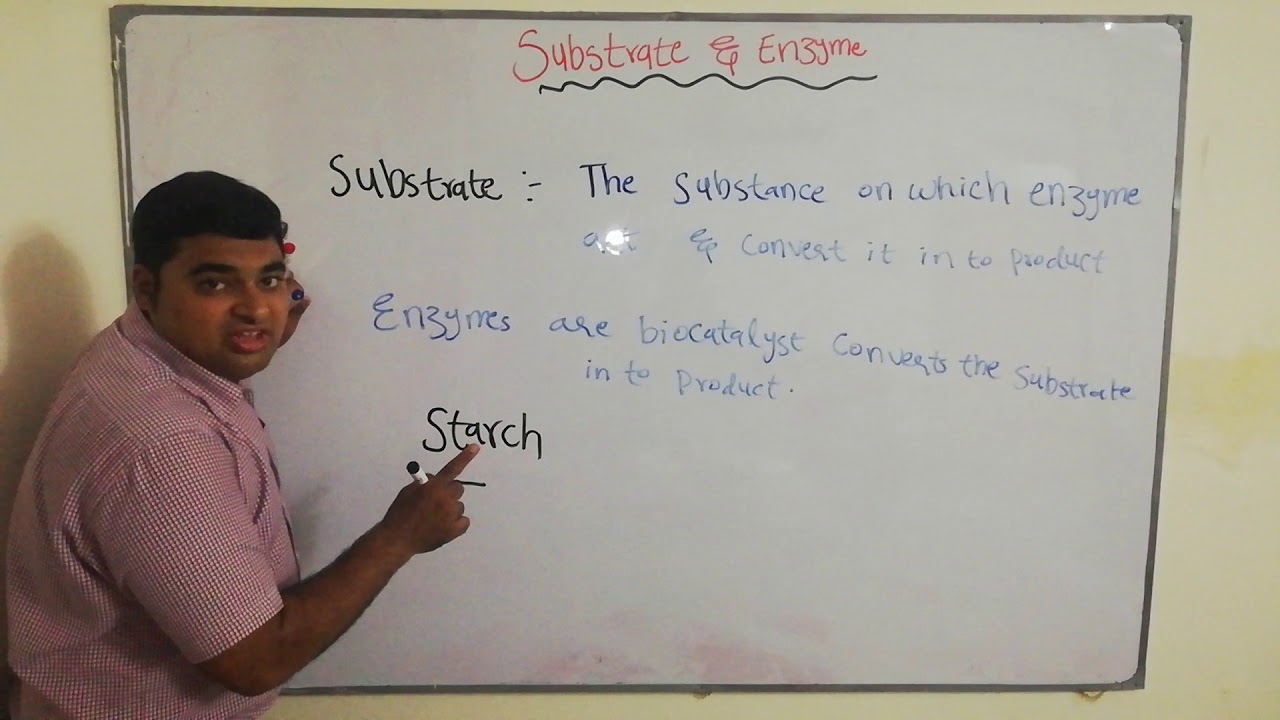 Substrate & Enzyme
Substrate :- The substance on which enzyme
act & convert it in to product
Enzymes are biocatalyst converts the substrate
in to product.
Starch